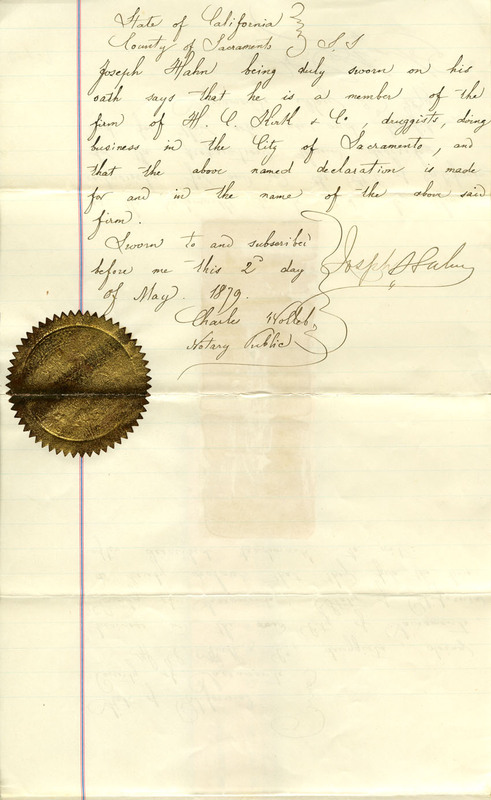 State of California
County of Sacramento } S.S
Joseph Hahn being duly sworn on his
oath says that he is a member of the
firm of H. C. Kirk & Co, druggists, doing
business in the City of Sacramento, and
that the above named declaration is made
for and in the name of the above said
firm.
Sworn to and subscribed
before me this 2d day
of May. 1879.
Joseph Hahn
Charles Wolleb,
Notary Public